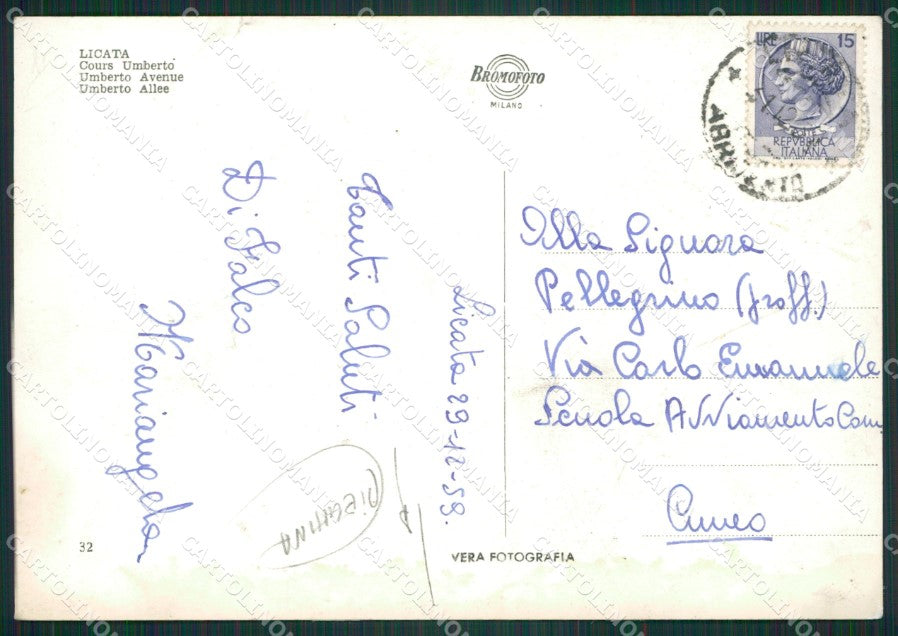 LICATA
Cours Umberto
Umberto Avenue
Umberto Allee
BROMOFOTO
MILANO
LIRE 15
REPVBBLICA
ITALIANA
Licata 29-12-59.
Tanti Saluti
Di Falco
Mariangela
Alla Signora
Pellegrino (Proff.)
Via Carlo Emanuele
Scuola Avviamento Com.
Cuneo
32
VERA FOTOGRAFIA
CARTOLINOMANIA